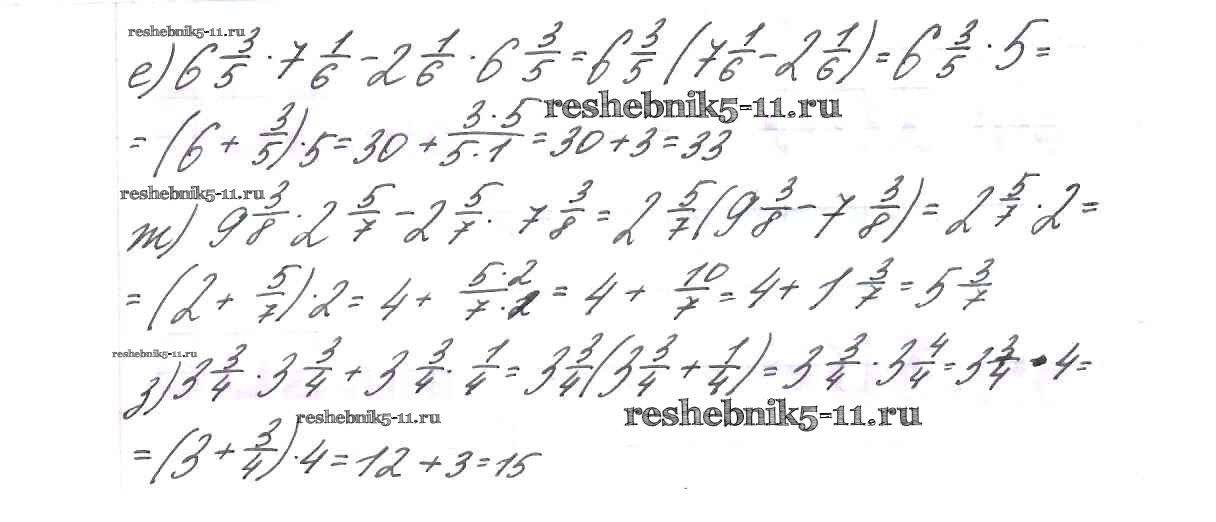 reshebnik5-11.ru
е) 6 3/5 · 7 1/6 - 2 1/6 · 6 3/5 = 6 3/5 (7 1/6 - 2 1/6) = 6 3/5 · 5 =
reshebnik5-11.ru
= (6 + 3/5) · 5 = 30 + 3·5/5·1 = 30 + 3 = 33
reshebnik5-11.ru
ж) 9 3/8 · 2 5/7 - 2 5/7 · 7 3/8 = 2 5/7 (9 3/8 - 7 3/8) = 2 5/7 · 2 =
= (2 + 5/7) · 2 = 4 + 5·2/7·2 = 4 + 10/7 = 4 + 1 3/7 = 5 3/7
reshebnik5-11.ru
з) 3 3/4 · 3 3/4 + 3 3/4 · 1/4 = 3 3/4 (3 3/4 + 1/4) = 3 3/4 · 3 4/4 = 3 3/4 · 4 =
reshebnik5-11.ru
reshebnik5-11.ru
= (3 + 3/4) · 4 = 12 + 3 = 15